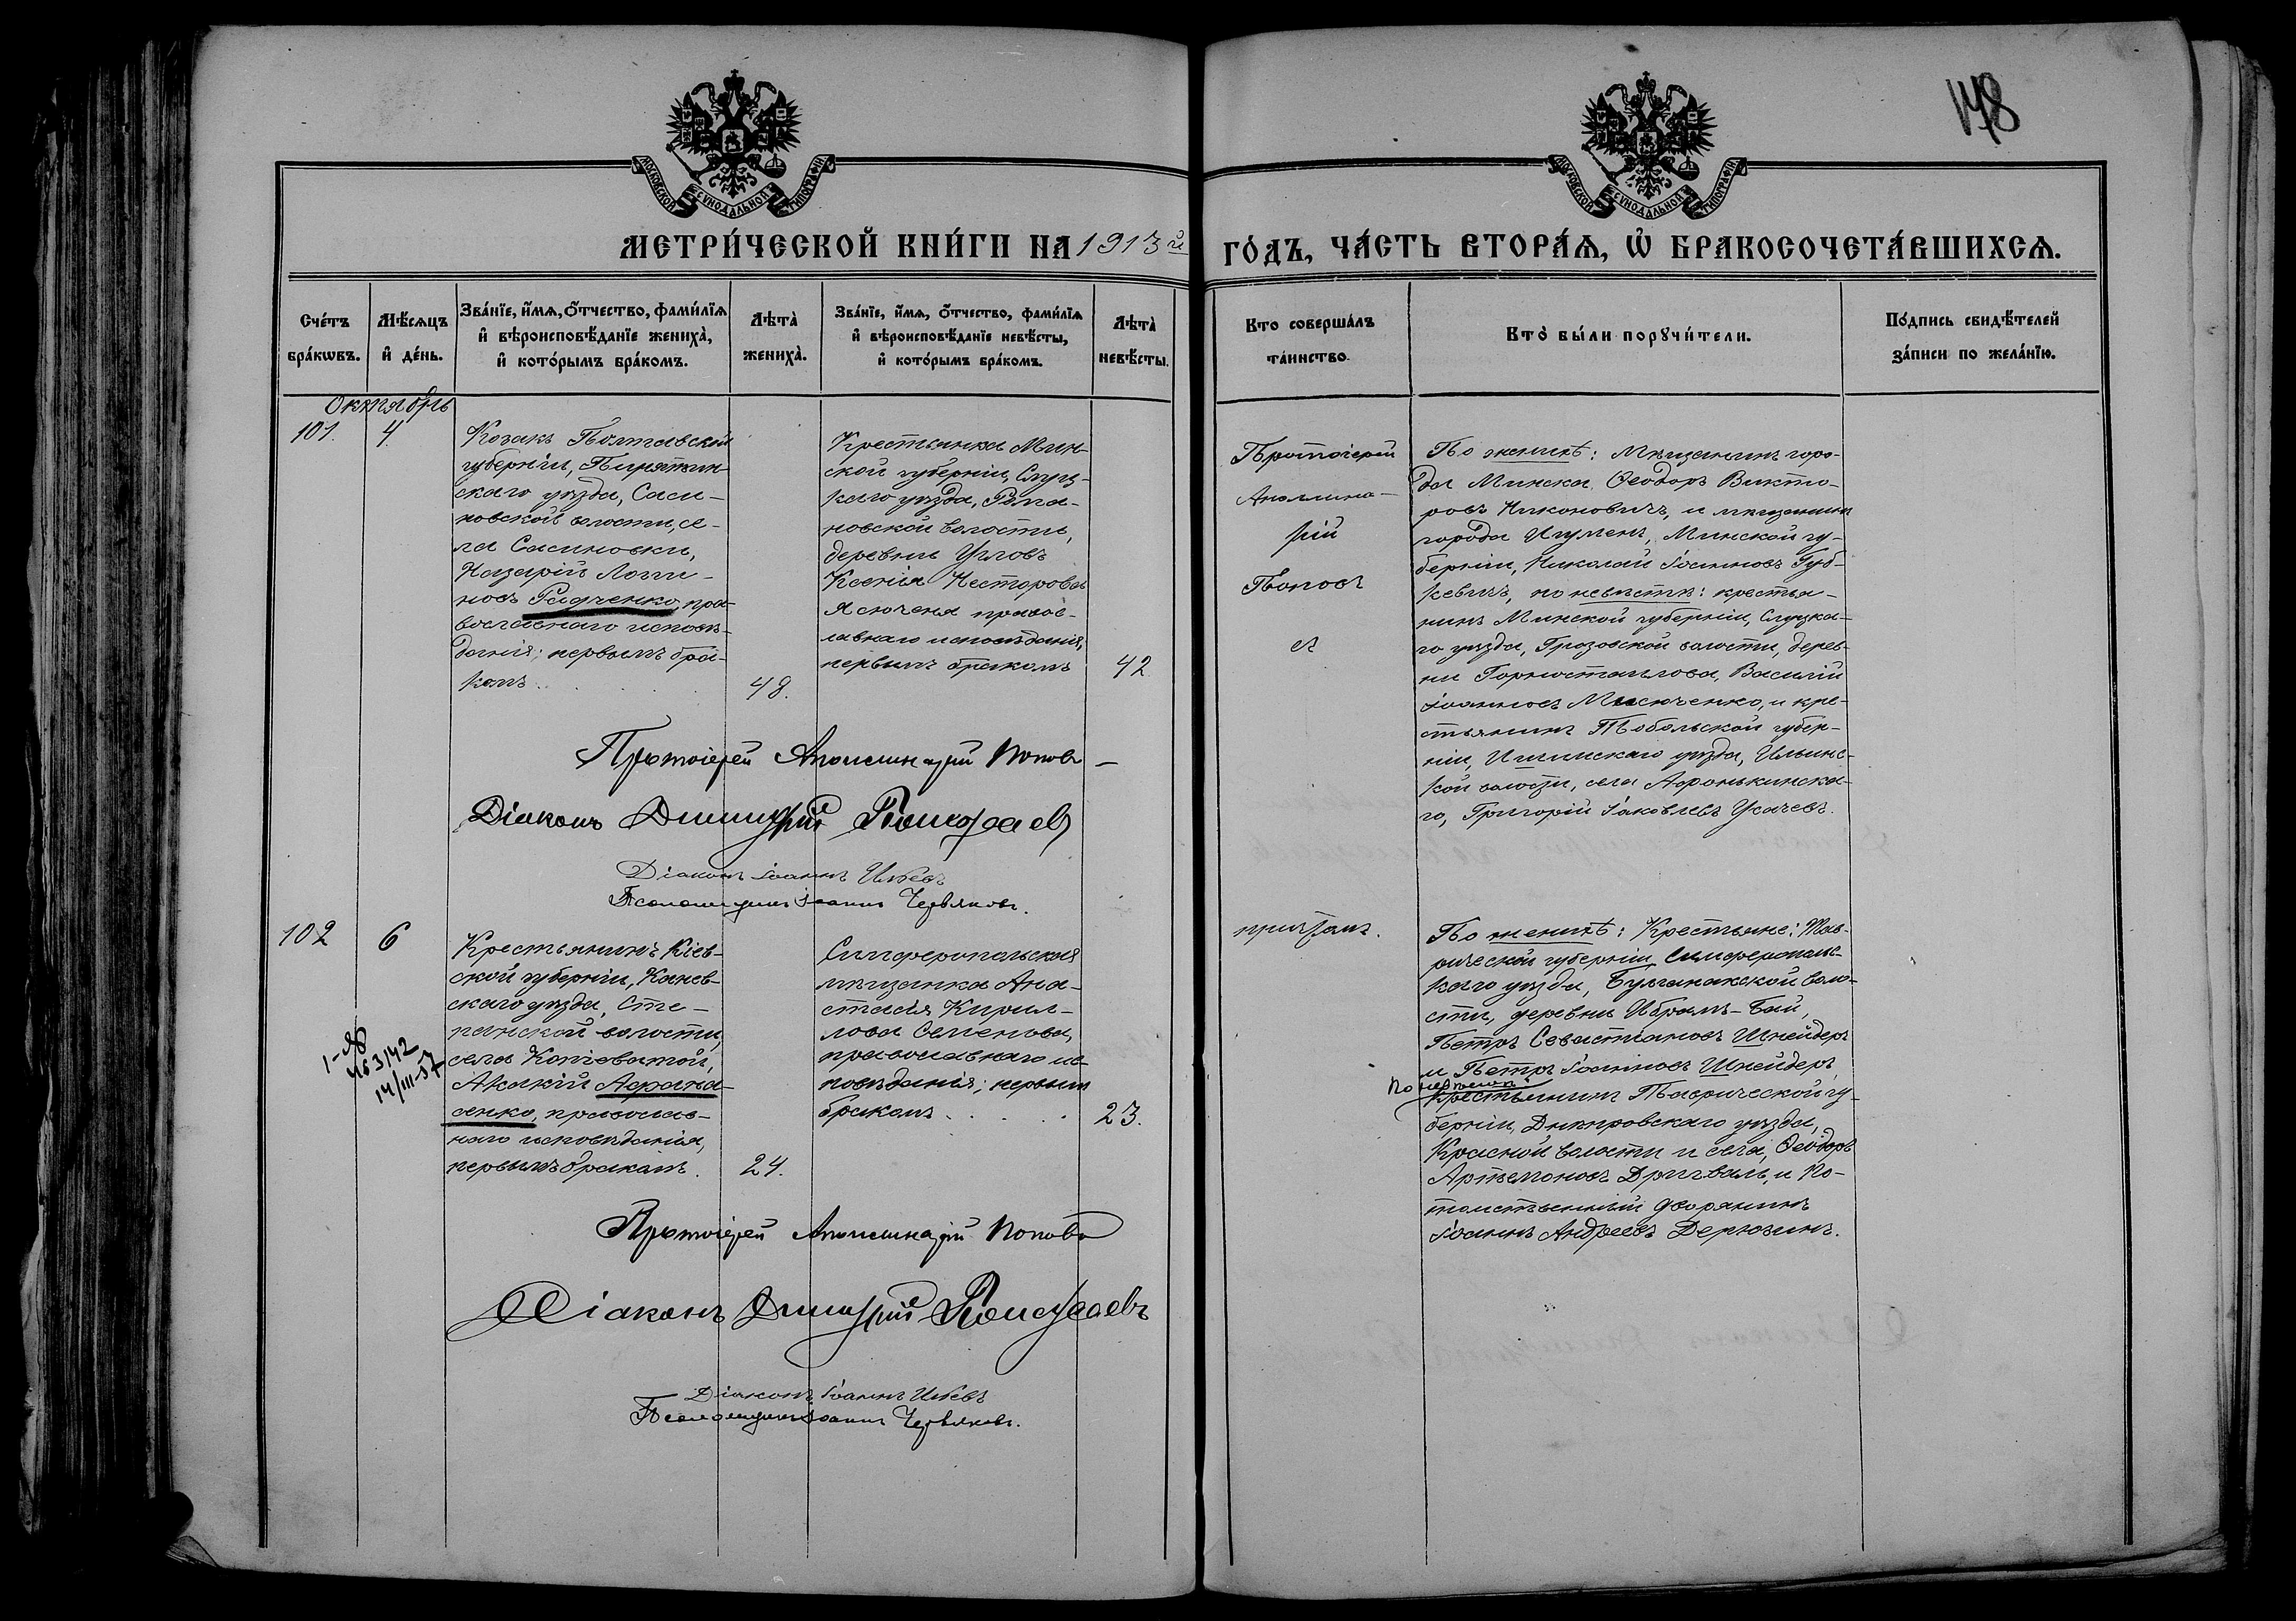 148
МОСКОВСКОЙ СѴНОДАЛЬНОЙ ТИПОГРАФІИ
МОСКОВСКОЙ СѴНОДАЛЬНОЙ ТИПОГРАФІИ
МЕТРИ́ЧЕСКОЙ КНИ́ГИ НА 1913й ГО́ДЪ, ЧА́СТЬ ВТОРА́Ѧ, Ѡ҆ БРАКОСОЧЕТА́ВШИХСѦ.
Сче́тъ бра́кѡвъ.
Мѣ́сѧцъ и҆ де́нь.
Зва́нїе, и҆́мѧ, ѻ҆́тчество, фами́лїѧ
и҆ вѣроисповѣ́данїе жениха̀,
и҆ кото́рымъ бра́комъ.
Лѣта̀ жениха̀.
Зва́нїе, и҆́мѧ, ѻ҆́тчество, фами́лїѧ
и҆ вѣроисповѣ́данїе невѣ́сты,
и҆ кото́рымъ бра́комъ.
Лѣта̀ невѣ́сты.
Кто соверша́лъ та́инство.
Кто̀ бы́ли порꙋчи́тели.
По́дпись свидѣ́телей
за́писи по жела́нїю.
Октябрь
101.
4.
Козакъ Полтавской
губерніи, Пирятин-
скаго уѣзда, Саси-
новской волости, се-
ла Сасиновки,
Назарій Логги-
новъ Радченко, пра-
вославнаго исповѣ-
данія; первымъ бра-
комъ . . . .
48.
Крестьянка Мин-
ской губерніи, Слуц-
каго уѣзда, Рома-
новской волости,
деревни Угловъ
Ксенія Несторова
Ясюченя правос-
лавнаго исповѣданія,
первымъ бракомъ
42
Протоіерей
Аполлина-
рій
Поповъ
съ
По женихѣ: Мѣщанинъ горо-
да Минска Ѳеодоръ Викто-
ровъ Никоновичъ, и мѣщанинъ
города Игумена, Минской гу-
берніи, Николай Іоанновъ Губ-
кевичъ, по невѣстѣ: крестья-
нинъ Минской губерніи, Слуцка-
го уѣзда, Грозовской волости, дерев-
ни Горностаилова, Василій
Іоанновъ Мисюченко, и кре-
стьянинъ Тобольской губер-
ніи, Ишимскаго уѣзда, Ильинс-
кой волости, села Афонькинска-
го, Григорій Іаковлевъ Усачевъ.
Протоіерей Аполлинарій Поповъ
Діаконъ Димитрій
Діаконъ Іоаннъ
Псаломщикъ Іоаннъ Червяковъ.
102
6
1-ЯЮ
14/III-57
Крестьянинъ Кіев-
ской губерніи, Канев-
скаго уѣзда, Сте-
панской волости,
села Копіеватой,
Акакій Афана-
сенко, православ-
наго исповѣданія,
первымъ бракомъ.
24.
Симферопольская
мѣщанка Ана-
стасія Кирил-
лова Семенова,
православнаго ис-
повѣданія; первымъ
бракомъ . . . .
23.
причтомъ.
По женихѣ: Крестьяне: Тав-
рической губерніи, Симферопольс-
каго уѣзда, Булганакской воло-
сти, деревни Ибрамъ-Бай,
Петръ Севастіановъ Шнейдеръ
и Петръ Іоанновъ Шнейдеръ,
По невѣстѣ:
крестьянинъ Таврической гу-
берніи, Днѣпровскаго уѣзда,
Красной волости и села, Ѳеодоръ
Артемоновъ Дригваль, и по-
томственный дворянинъ
Іоаннъ Андреевъ Дерюгинъ.
Протоіерей Аполлинарій Поповъ
Діаконъ Димитрій
Діаконъ Іоаннъ
Псаломщикъ Іоаннъ Червяковъ.